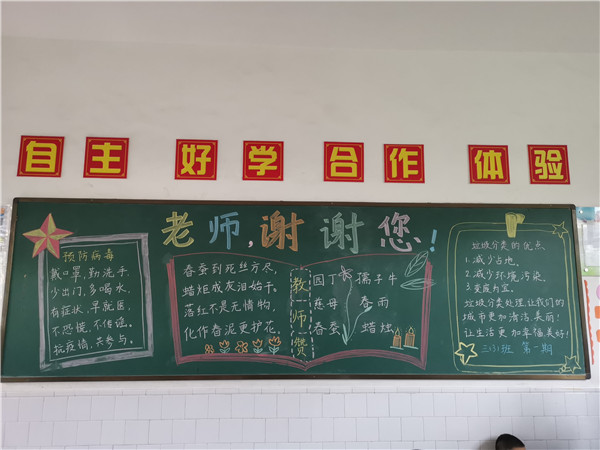 自主 好学 合作 体验
老师,谢谢您!
预防病毒
戴口罩,勤洗手,
少出门,多喝水,
有症状,早就医,
不恐慌,不传谣。
抗疫情,共参与。
春蚕到死丝方尽,
蜡炬成灰泪始干。
落红不是无情物,
化作春泥更护花。
教师赞
园丁 孺子牛
慈母 春雨
春蚕 蜡烛
垃圾分类的优点
1.减少占地。
2.减少环境污染。
3.变废为宝。
垃圾分类处理让我们的
城市更加清洁、美丽!
让生活更加幸福美好!
三(3)班 第一期